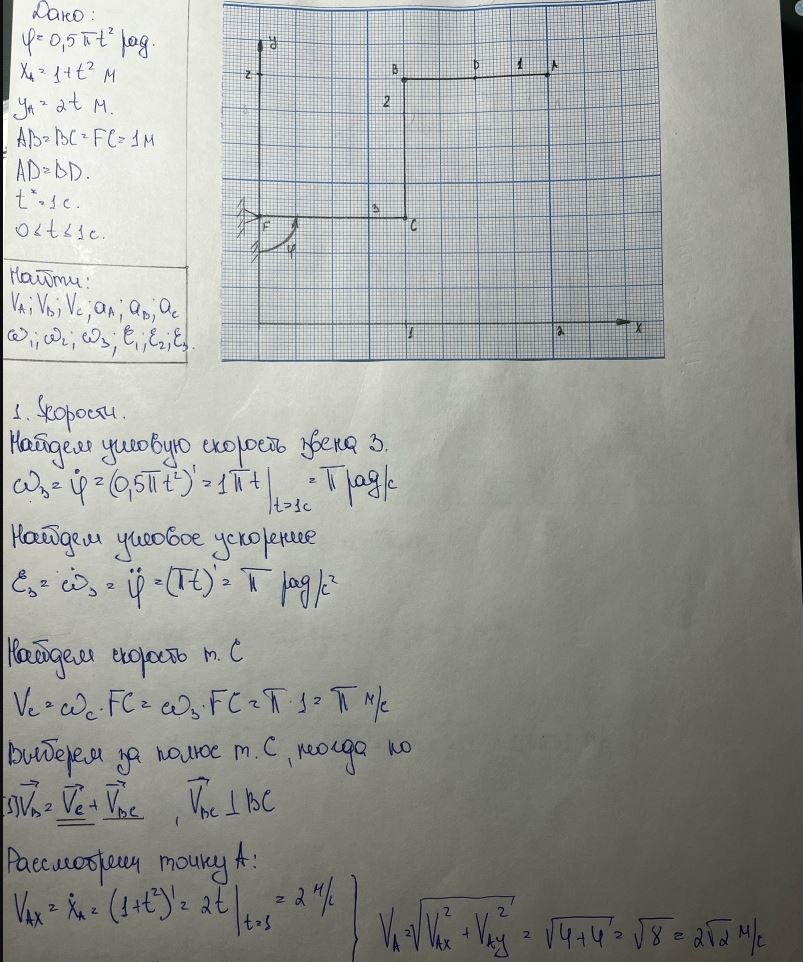 Дано:
φ = 0,5πt² рад.
x_A = 1+t² м
y_A = 2t м.
AB=BC=FC=1м
AD=BD.
t*=1с.
0≤t≤1с.
Найти:
V_A; V_B; V_C; a_A; a_B; a_C
ω₁; ω₂; ω₃; ε₁; ε₂; ε₃.
y
2
B
D
1
A
2
3
F
C
φ
1
2
x
1. Скорости.
Найдем угловую скорость звена 3.
ω₃ = φ̇ = (0,5πt²)' = 1πt|t=1c = π рад/с
Найдем угловое ускорение
ε₃ = ω̇₃ = φ̈ = (πt)' = π рад/с²
Найдем скорость т. С
V_C = ω_C · FC = ω₃ · FC = π · 1 = π м/с
Выберем за полюс т. С, тогда по
V⃗_B = V⃗_C + V⃗_BC , V⃗_BC ⊥ BC
Рассмотрим точку А:
V_AX = ẋ_A = (1+t²)' = 2t|t=1 = 2 м/с } V_A = √(V_AX² + V_Ay²) = √(4+4) = √8 = 2√2 м/с